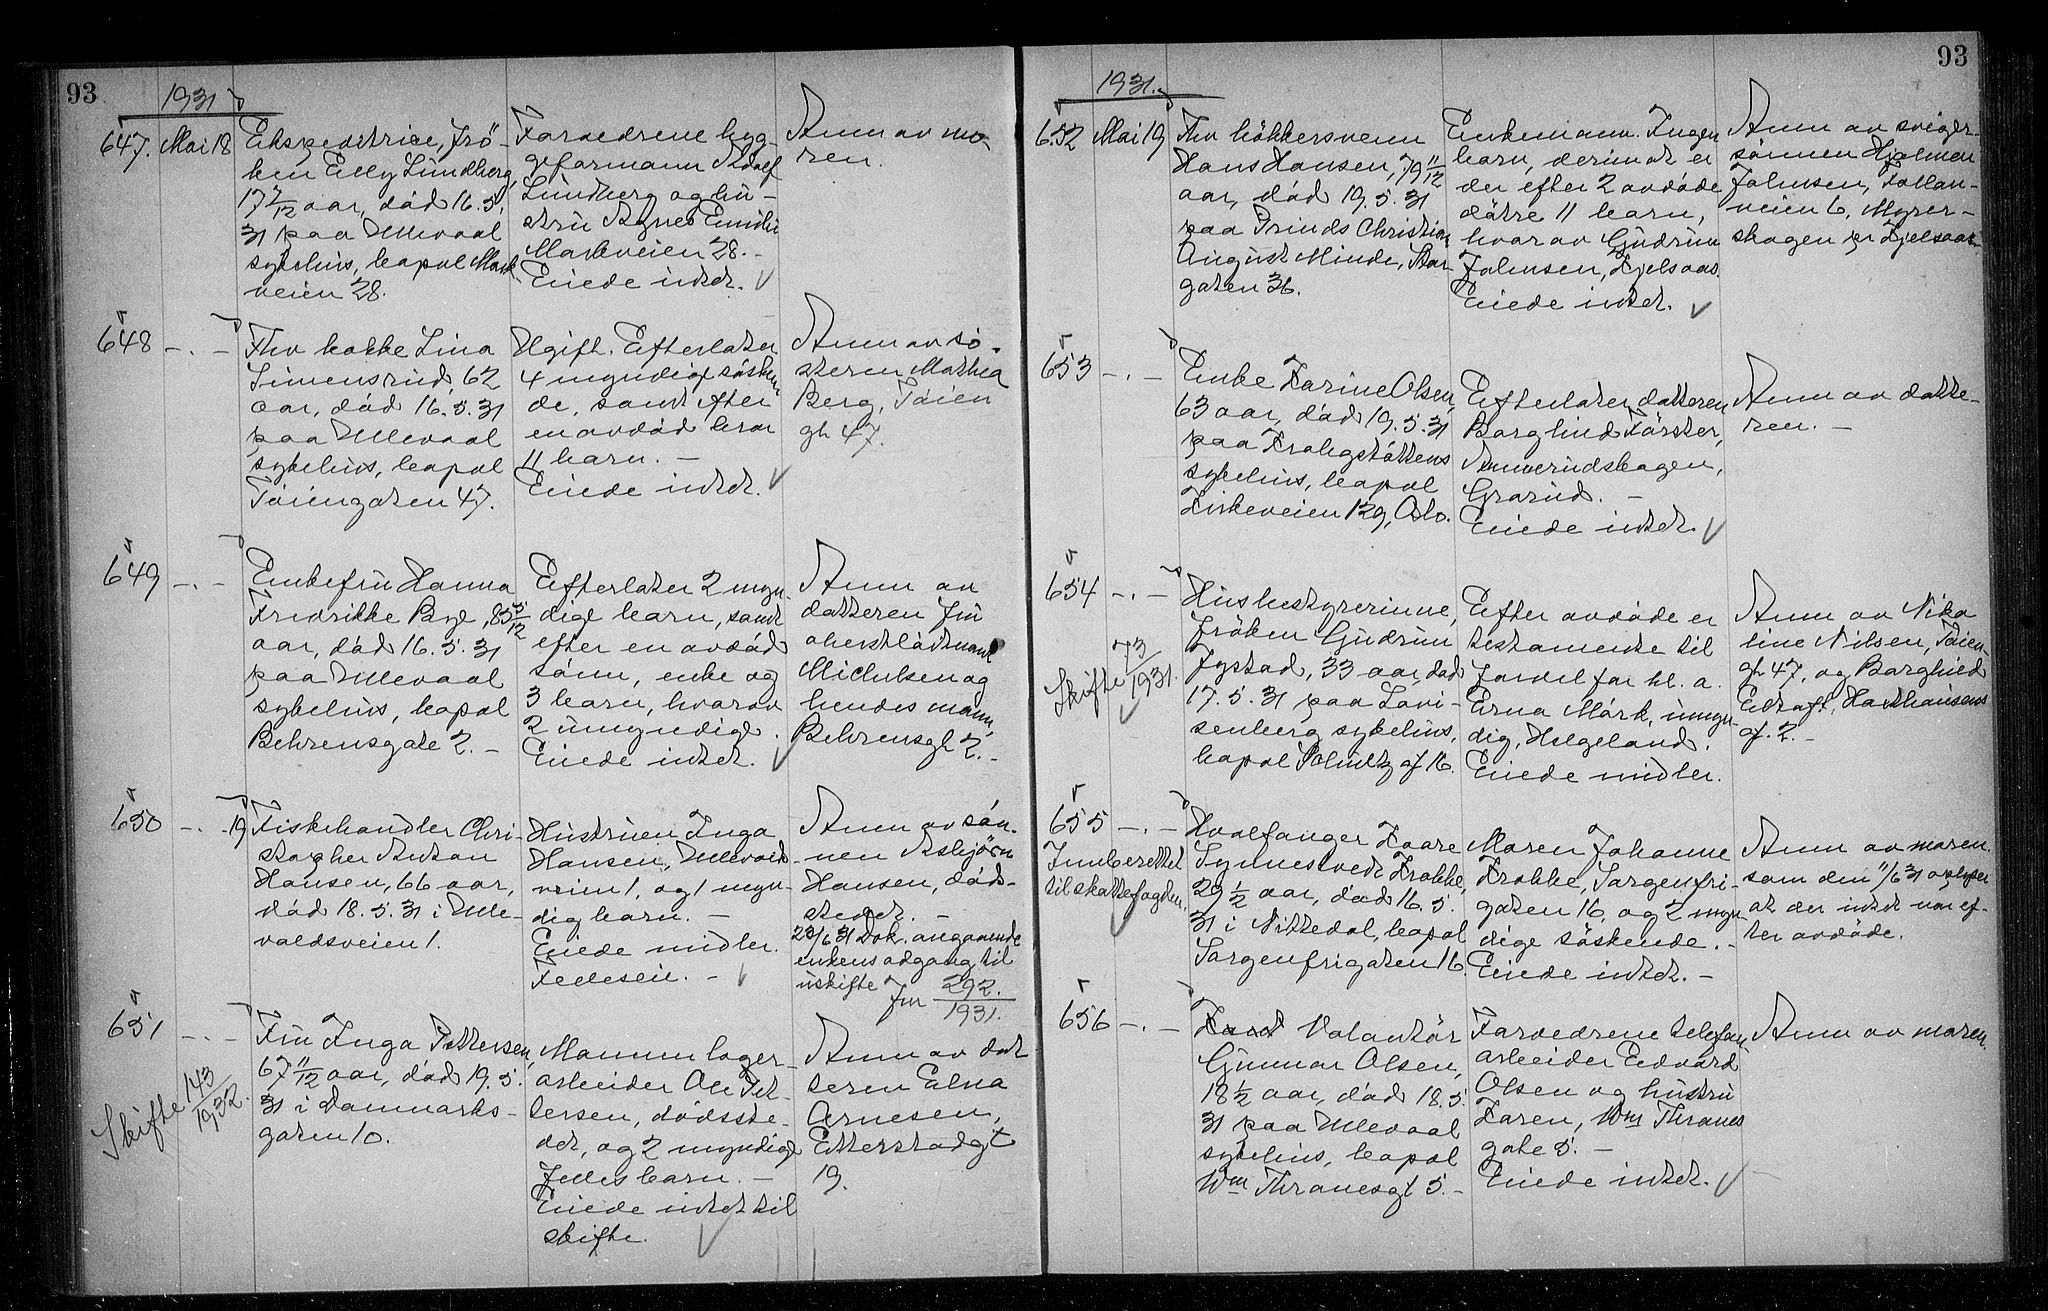 93
1931
647. Mai 18
Ekspeditrice, frö-
ken Elly Lundberg,
17 7/12 aar, död 16.5.
31 paa Ullevaal
sykehus, bopæl Mark-
veien 28.
Forældrene byg-
geformann Adolf
Lundberg og hu-
stru Agnes Emilie
Markveien 28.-
Eiede intet.
Anm av mo-
ren.
648 -.-
Fhv kokke Lina
Simensrud 62
aar, död 16.5.31
paa Ullevaal
sykehus, bopæl
Töiengaten 47.
Ugift. Efterlater
4 myndige sösken-
de, samt efter
en avdöd bror
11 barn. -
Eiede intet.
Anm av sö-
steren Mathea
Berg, Töien
gt 47.
649 -.-
Enkefru Hanna
Fredrikke Bye, 85 5/12
aar, död 16.5.31
paa Ullevaal
sykehus, bopæl
Behrensgate 2. -
Efterlater 2 myn-
dige barn, samt
efter en avdöd
sönn, enke og
3 barn, hvorav
2 umyndige.
Eiede intet.
Anm av
datteren fru
oberstlöitnant
Michelsen og
hendes mann,
Behrensgt 2.-
650 -.- 19
Fiskehandler Chri-
stopher Anton
Hansen, 66 aar,
död 18.5.31 i Ulle-
voldsveien 1.
Hustruen Inga
Hansen, Ullevolds-
veien 1, og 1 myn-
dig barn. -
Eiede midler.
Felleseie. -
Anm av sön-
nen Asbjörn
Hansen, död-
stedet. -
23/6 31 Dok. angaaende
enkens adgang til
uskifte Jnr 292./1931.
651 -.-
Skifte 143/1932.
Fru Inga Pettersen,
67 11/12 aar, död 19.5.
31 i Danmarks-
gaten 10.
Mannen lager-
arbeider Ole Pet-
tersen, dödsste-
det, og 2 myndige
felles barn. -
Eiede intet til
skifte.
Anm av dat
teren Edna
Arnesen,
Etterstadgt
19.
93
1931.
652 Mai 19
Fhv bökkersvenn
Hans Hansen, 79 11/12
aar, död 19.5.31
paa Prinds Christian
August Minde, Stor-
gaten 36.
Enkemann. Ingen
barn, derimot er
der efter 2 avdöde
dötre 11 barn,
hvorav Gudrun
Johnsen, Kjelsaas.
Eiede intet.
Anm av sviger-
sönnen Hjalmar
Johnsen, Follan-
veien 6, Myrer-
skogen pr Kjelsaas.
653 -.-
Enke Karine Olsen,
63 aar, död 19.5.31
paa Krohgstöttens
sykehus, bopæl
Kirkeveien 129, Oslo.
Efterlater datteren
Borghild Förster,
Ammerudskogen,
Grorud. -
Eiede intet.
Anm av datte-
ren. -
654 -.-
Skifte 73/1931.
Husbestyrerinne,
fröken Gudrun
Jystad, 33 aar, död
17.5.31 paa Lovi-
senberg sykehus,
bopæl Schultz gt 16.
Efter avdöde er
testamente til
fordel for bl. a.
Erna Mörk, umyn-
dig, Helgeland.
Eiede midler.
Anm av Nika
line Nilsen, Töien-
gt 47, og Borghild
Hauthausens
gt. 2. -
655 -.-
Innberettet
til skattefogden.
Hvalfanger Kaare
Synnestvedt Krokke,
29 1/2 aar, död 16.5.
31 i Nittedal, bopæl
Sorgenfrigaten 16.
Moren Johanne
Krokke, Sorgenfri-
gaten 16, og 2 myn-
dige söskende. -
Eiede intet. -
Anm av moren.
som den 11/6 31 oplyser
at der intet var ef-
ter avdöde.
656 -.-
Volontör
Gunnar Olsen,
18 1/2 aar, död 18.5.
31 paa Ullevaal
sykehus, bopæl
Wm Thranesgt 5. -
Forældrene telefon-
arbeider Edvard
Olsen og hustru
Karen, Wm Thranes
gate 5. -
Eiede intet.
Anm av moren.